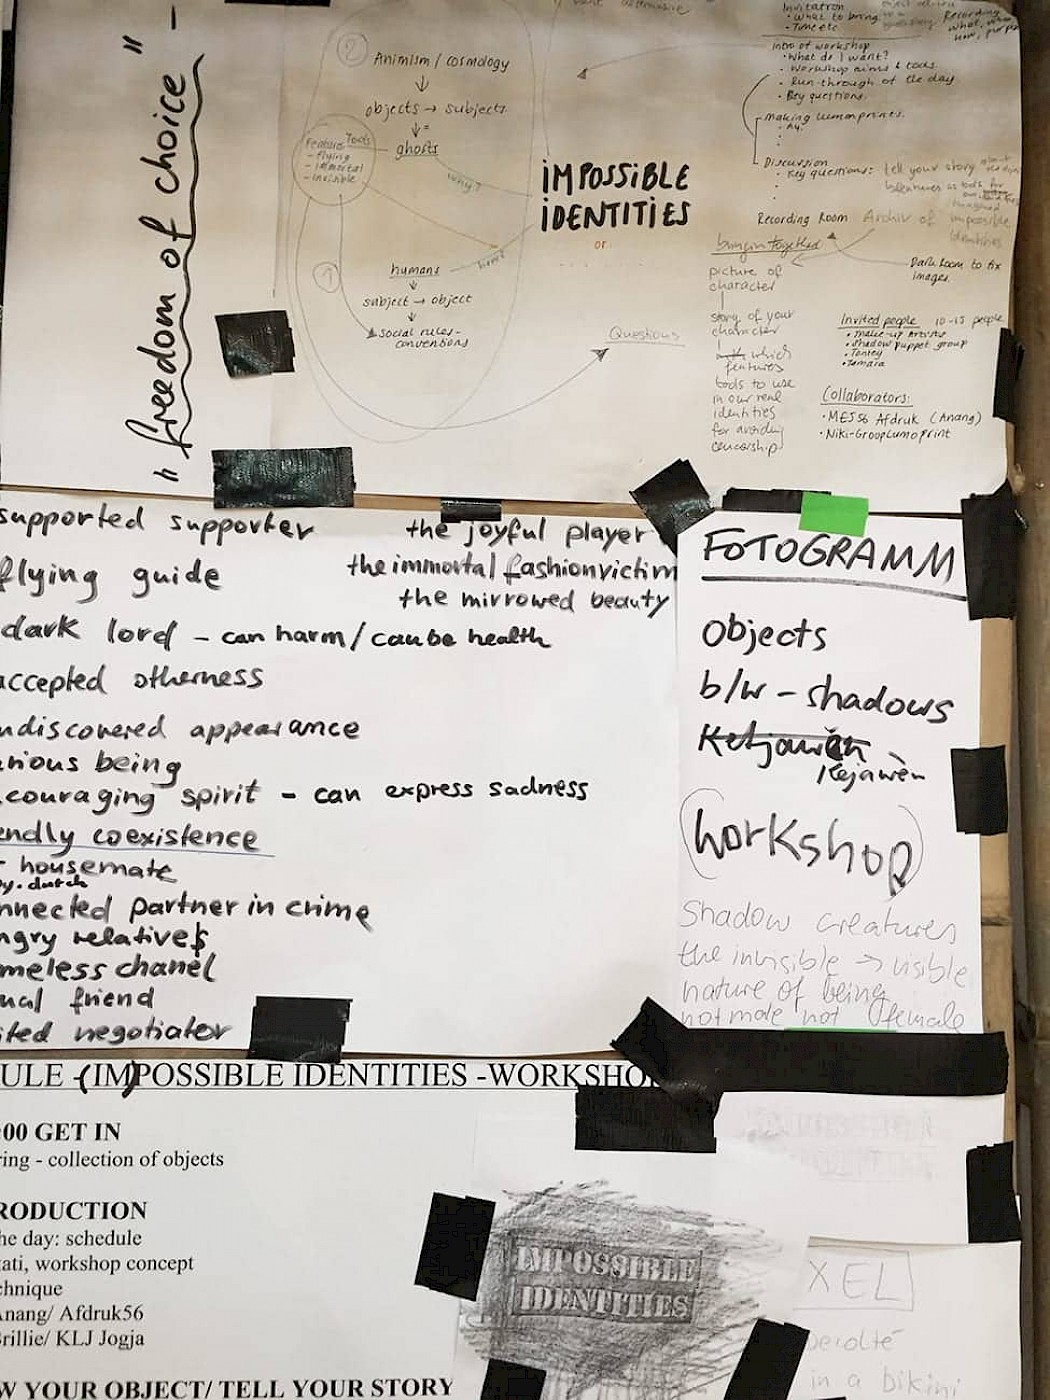 "freedom of choice" -
② Animism / cosmology
↓
objects → subjects
↓ =
ghosts
Features Tools
- flying
- immortal
- invisible
why?
① humans
↓
subject → object
↓
social rules -
conventions
IMPOSSIBLE
IDENTITIES
or
Questions
Invitation
• What to bring
• Time etc
Recording
what,
Intro of workshop
• What do I want?
• Workshop aims & tools
• Run-through of the day
• Key questions.
making lumenprints.
Discussion
• Key questions: tell your story
Recording Room Archiv of impossible
identities
bringin together
Dark Room to fix
images.
picture of
character
story of your
character
which
features
tools to use
in our real
identities
for avoiding
censorship
Invited people 10-15 people
• make-up Artists
• shadow puppet group
• Tontey
• Tamara
Collaborators:
• MES56 Afdruk (Anang)
• Niki-Group Lumoprint
supported supporter
flying guide
dark lord - can harm / can be health
accepted otherness
ndiscovered appearance
rious being
couraging spirit - can express sadness
endly coexistence
housemate
y. dutch
nnected partner in crime
ngry relatives
meless chanel
ual friend
ited negotiator
the joyful player
the immortal fashionvictim
the mirrowed beauty
FOTOGRAMM
Objects
b/w - shadows
Kejawèn
(Workshop)
Shadow creatures
the invisible → visible
nature of being
not male not female
ULE -(IM)POSSIBLE IDENTITIES -WORKSHO
:00 GET IN
ring - collection of objects
RODUCTION
he day: schedule
tati, workshop concept
chnique
Anang/ Afdruk56
Brillie/ KLJ Jogja
W YOUR OBJECT/ TELL YOUR STORY
IMPOSSIBLE
IDENTITIES
XEL
in a bikini